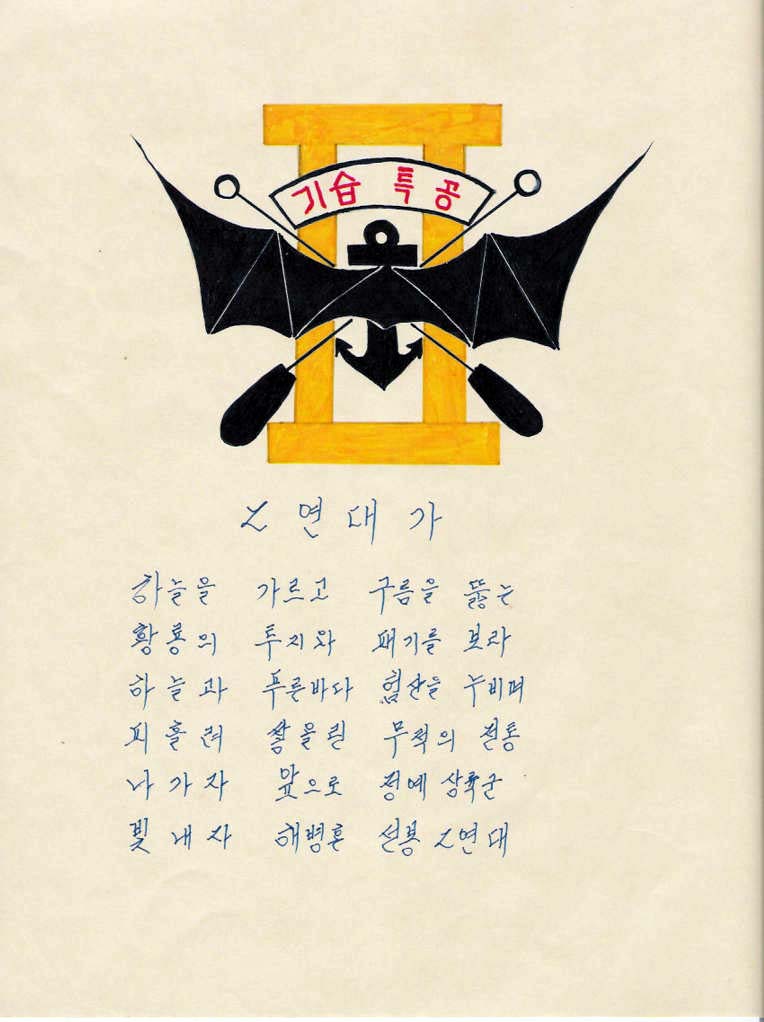 기습 특공
2 연 대 가
하늘을 가르고 구름을 뚫는
황룡의 투지와 패기를 보라
하늘과 푸른바다 험산을 누비며
피흘려 쌓올린 무적의 전통
나가자 앞으로 정예 상륙군
빛내자 해병혼 선봉 2연대